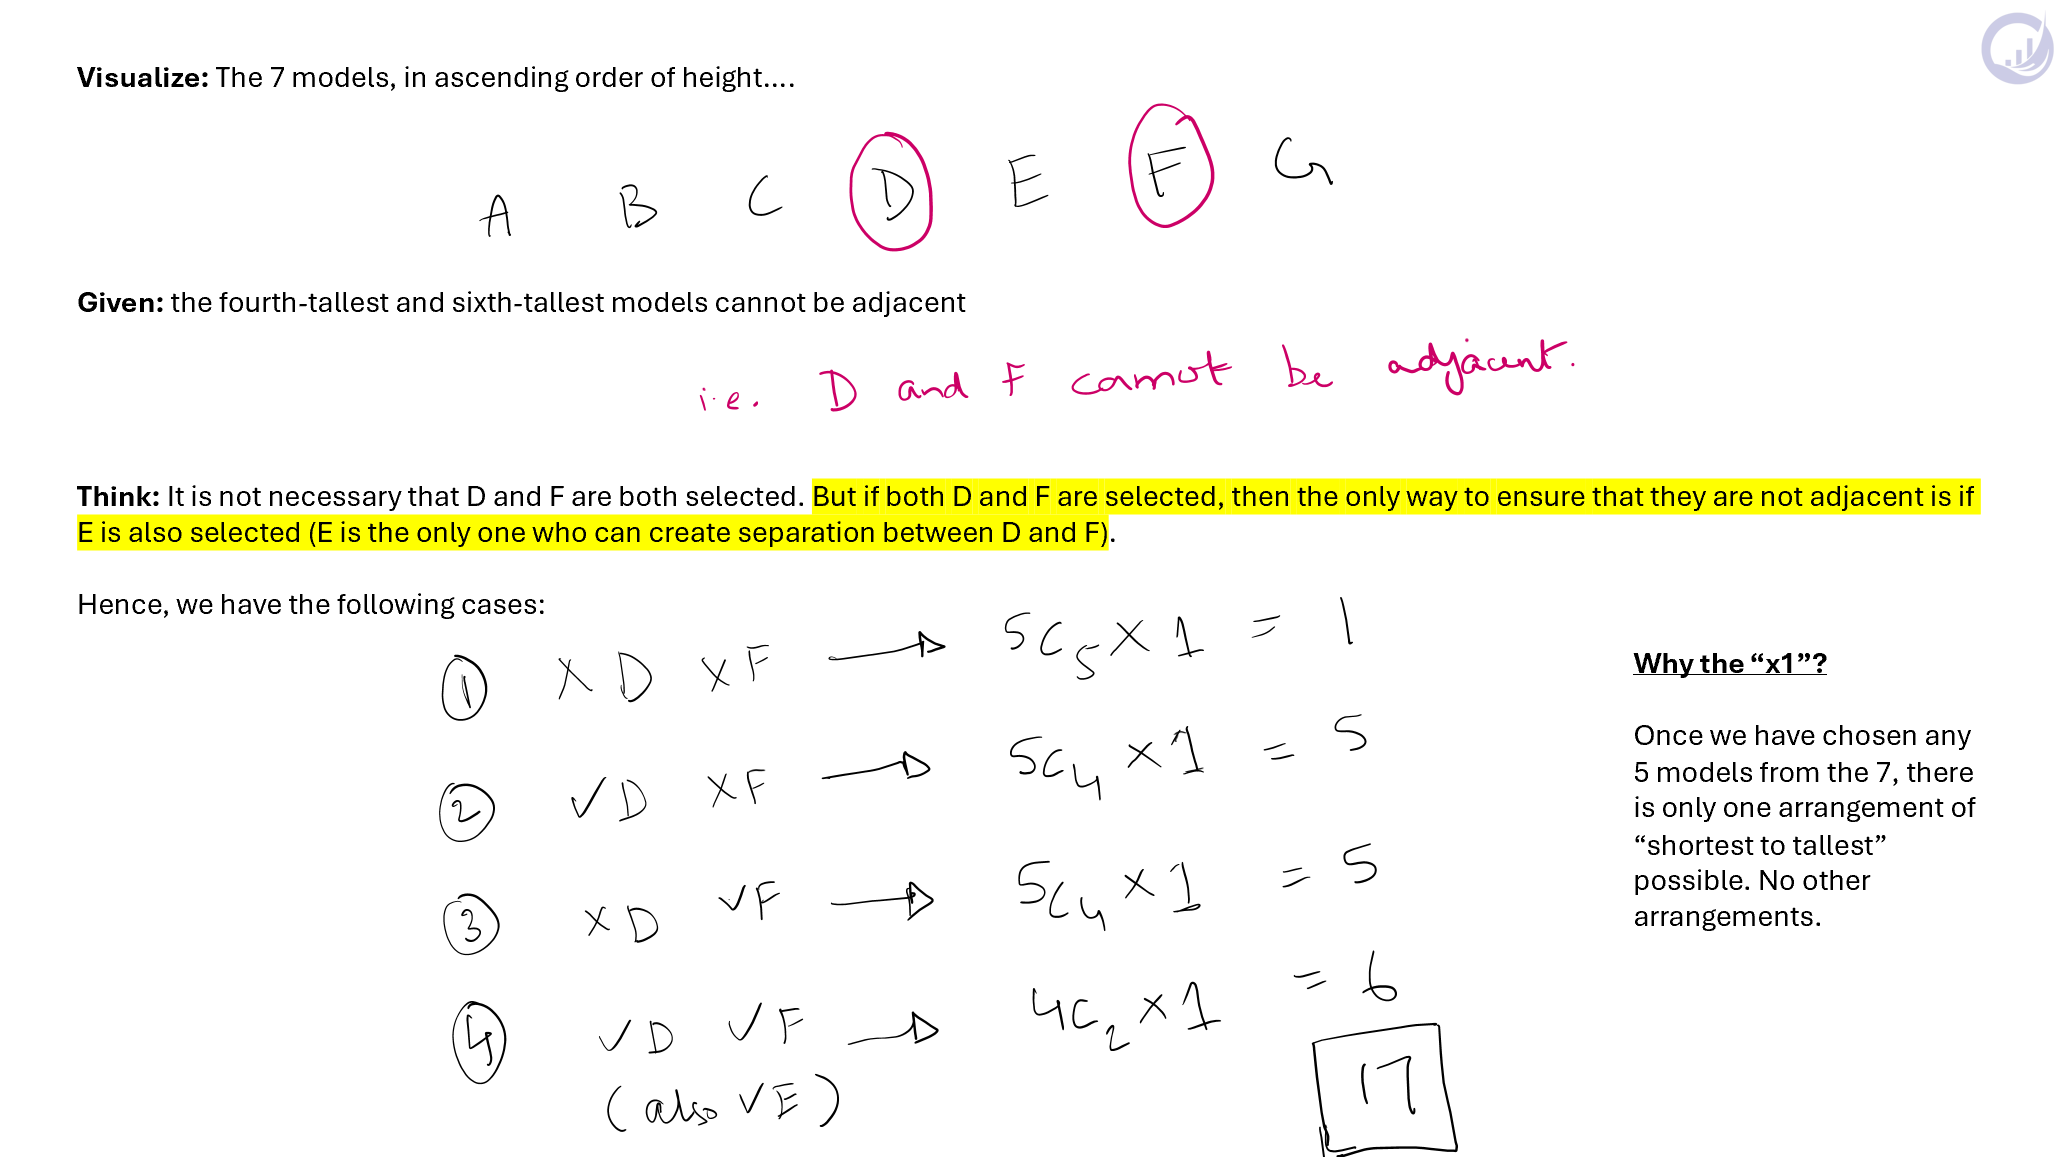 Visualize: The 7 models, in ascending order of height....
A B C D E F G
Given: the fourth-tallest and sixth-tallest models cannot be adjacent
i.e. D and F cannot be adjacent.
Think: It is not necessary that D and F are both selected. But if both D and F are selected, then the only way to ensure that they are not adjacent is if
E is also selected (E is the only one who can create separation between D and F).
Hence, we have the following cases:
① X D X F → 5C₅ X 1 = 1
② ✓ D X F → 5C₄ X 1 = 5
③ X D ✓ F → 5C₄ X 1 = 5
④ ✓ D ✓ F → 4C₂ X 1 = 6
(also ✓ E)
17
Why the “x1”?
Once we have chosen any
5 models from the 7, there
is only one arrangement of
“shortest to tallest”
possible. No other
arrangements.